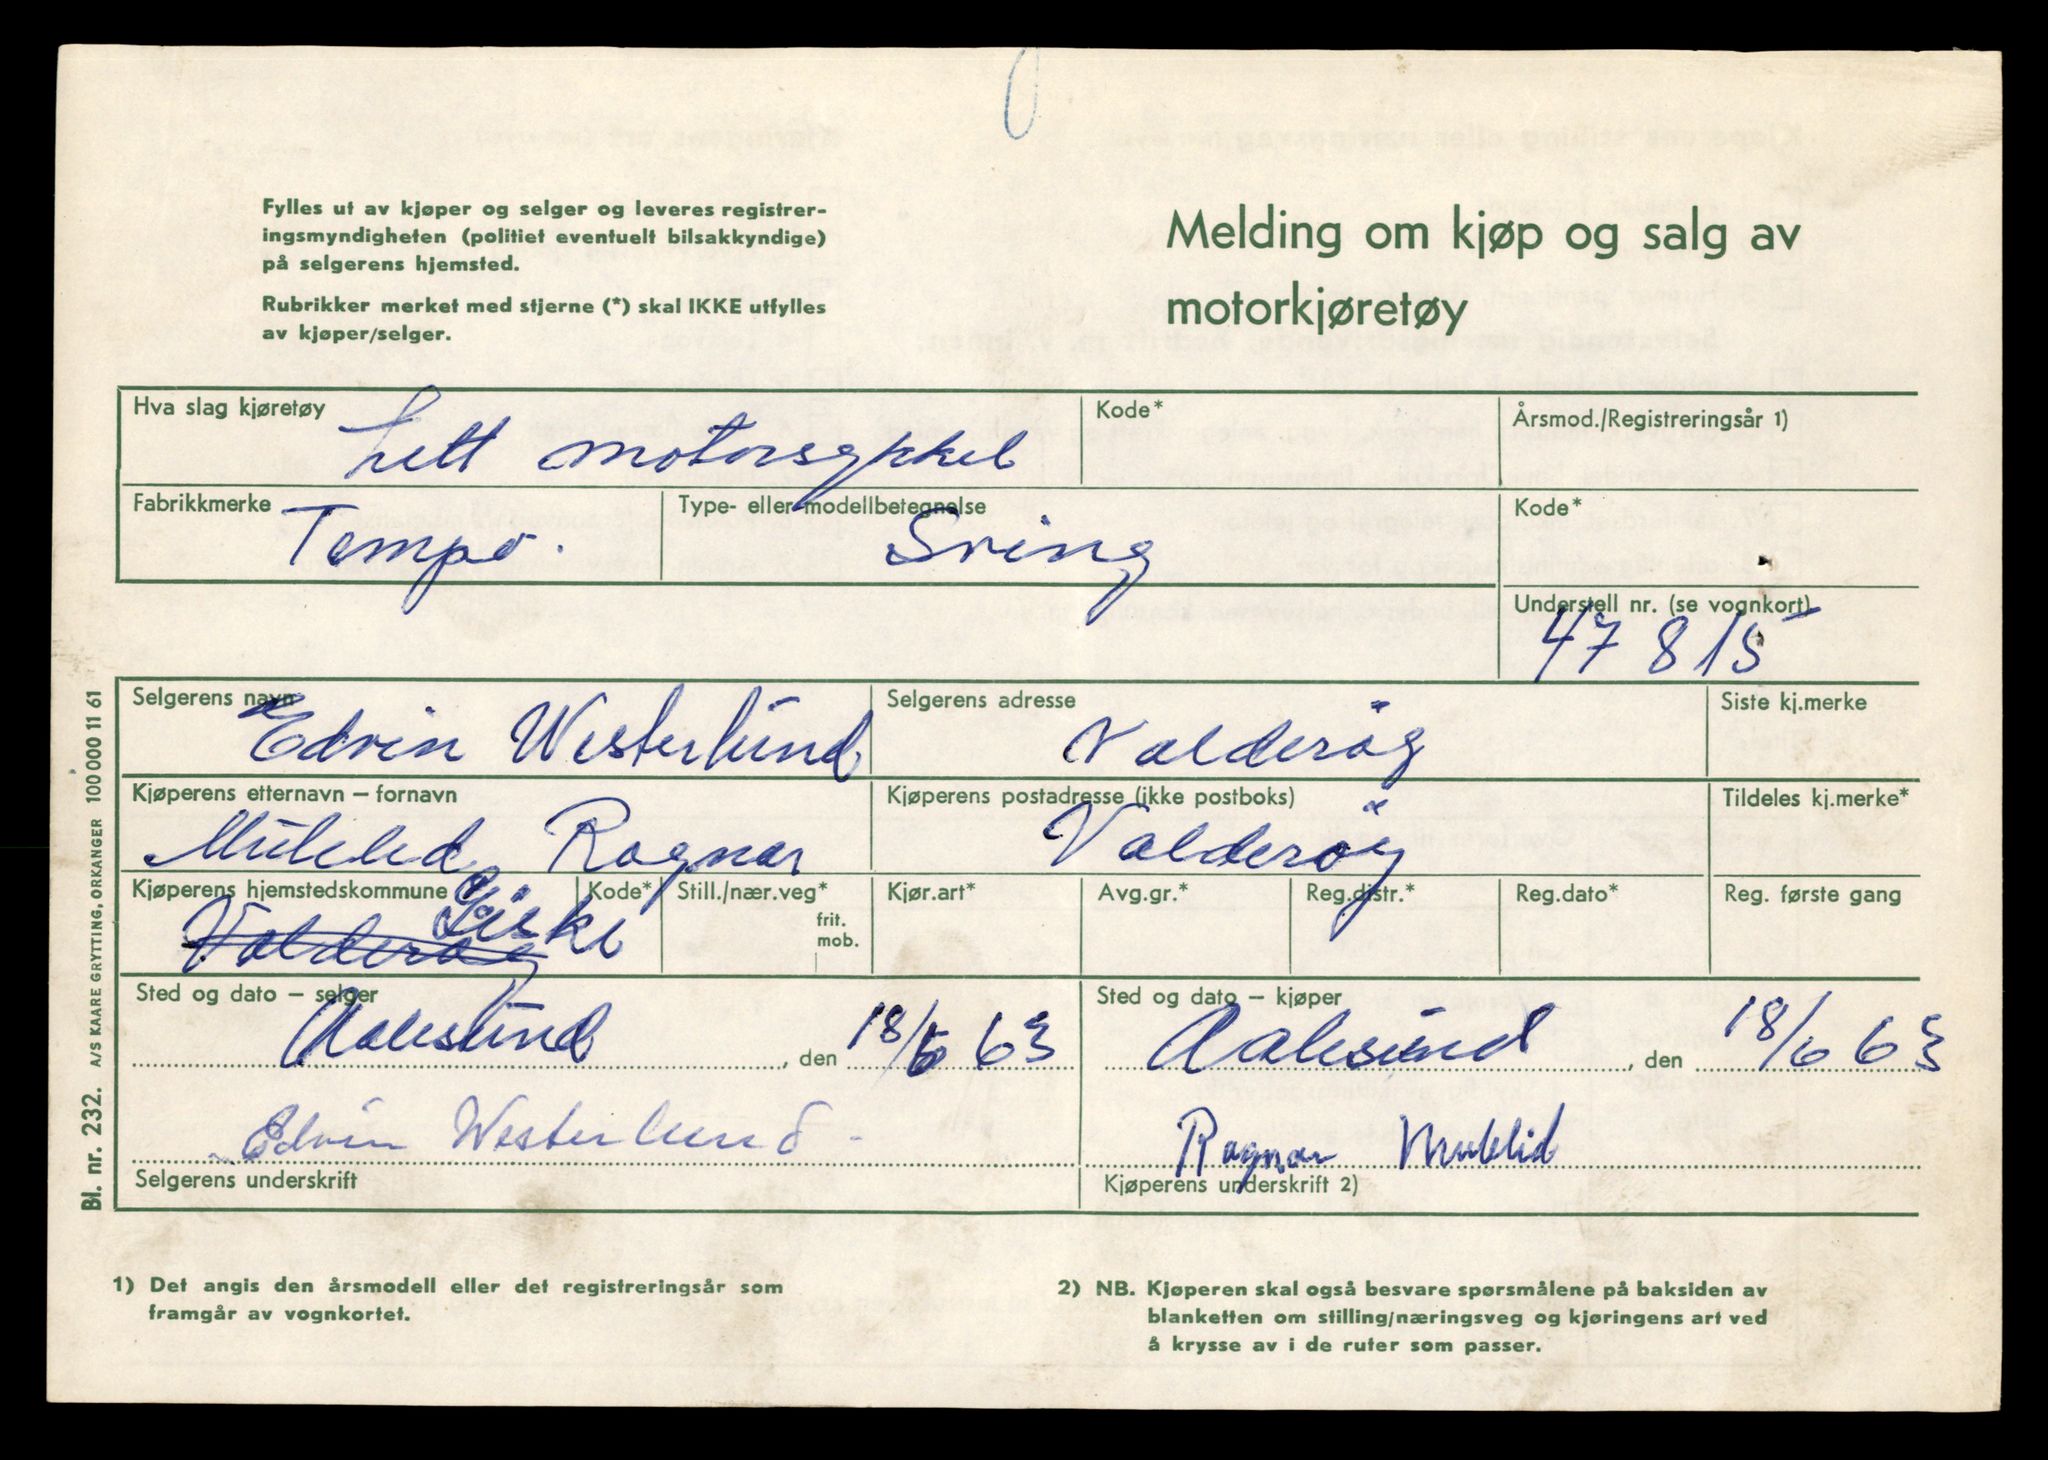 Fylles ut av kjøper og selger og leveres registrer-
ingsmyndigheten (politiet eventuelt bilsakkyndige)
på selgerens hjemsted.
Rubrikker merket med stjerne (*) skal IKKE utfylles
av kjøper/selger.
Melding om kjøp og salg av
motorkjøretøy
Hva slag kjøretøy Lett motorsykkel
Kode*
Årsmod./Registreringsår 1)
Fabrikkmerke Tempo.
Type- eller modellbetegnelse Sving
Kode*
Understell nr. (se vognkort)
47 815
Selgerens navn Edvin Westerlund
Selgerens adresse Valderøy
Siste kj.merke
Kjøperens etternavn – fornavn
Ragnar
Kjøperens postadresse (ikke postboks)
Valderøy
Tildeles kj.merke*
Kjøperens hjemstedskommune Giske
Valderøy
Kode*
Still./nær.veg*
frit.
mob.
Kjør.art*
Avg.gr.*
Reg.distr.*
Reg.dato*
Reg. første gang
Sted og dato – selger
Aalesund, den 18/6 63
Sted og dato – kjøper
Aalesund, den 18/6 63
Edvin Westerlund
Selgerens underskrift
Ragnar Muklid
Kjøperens underskrift 2)
Bl. nr. 232. A/S KAARE GRYTTING, ORKANGER 100 000 11 61
1) Det angis den årsmodell eller det registreringsår som
framgår av vognkortet.
2) NB. Kjøperen skal også besvare spørsmålene på baksiden av
blanketten om stilling/næringsveg og kjøringens art ved
å krysse av i de ruter som passer.